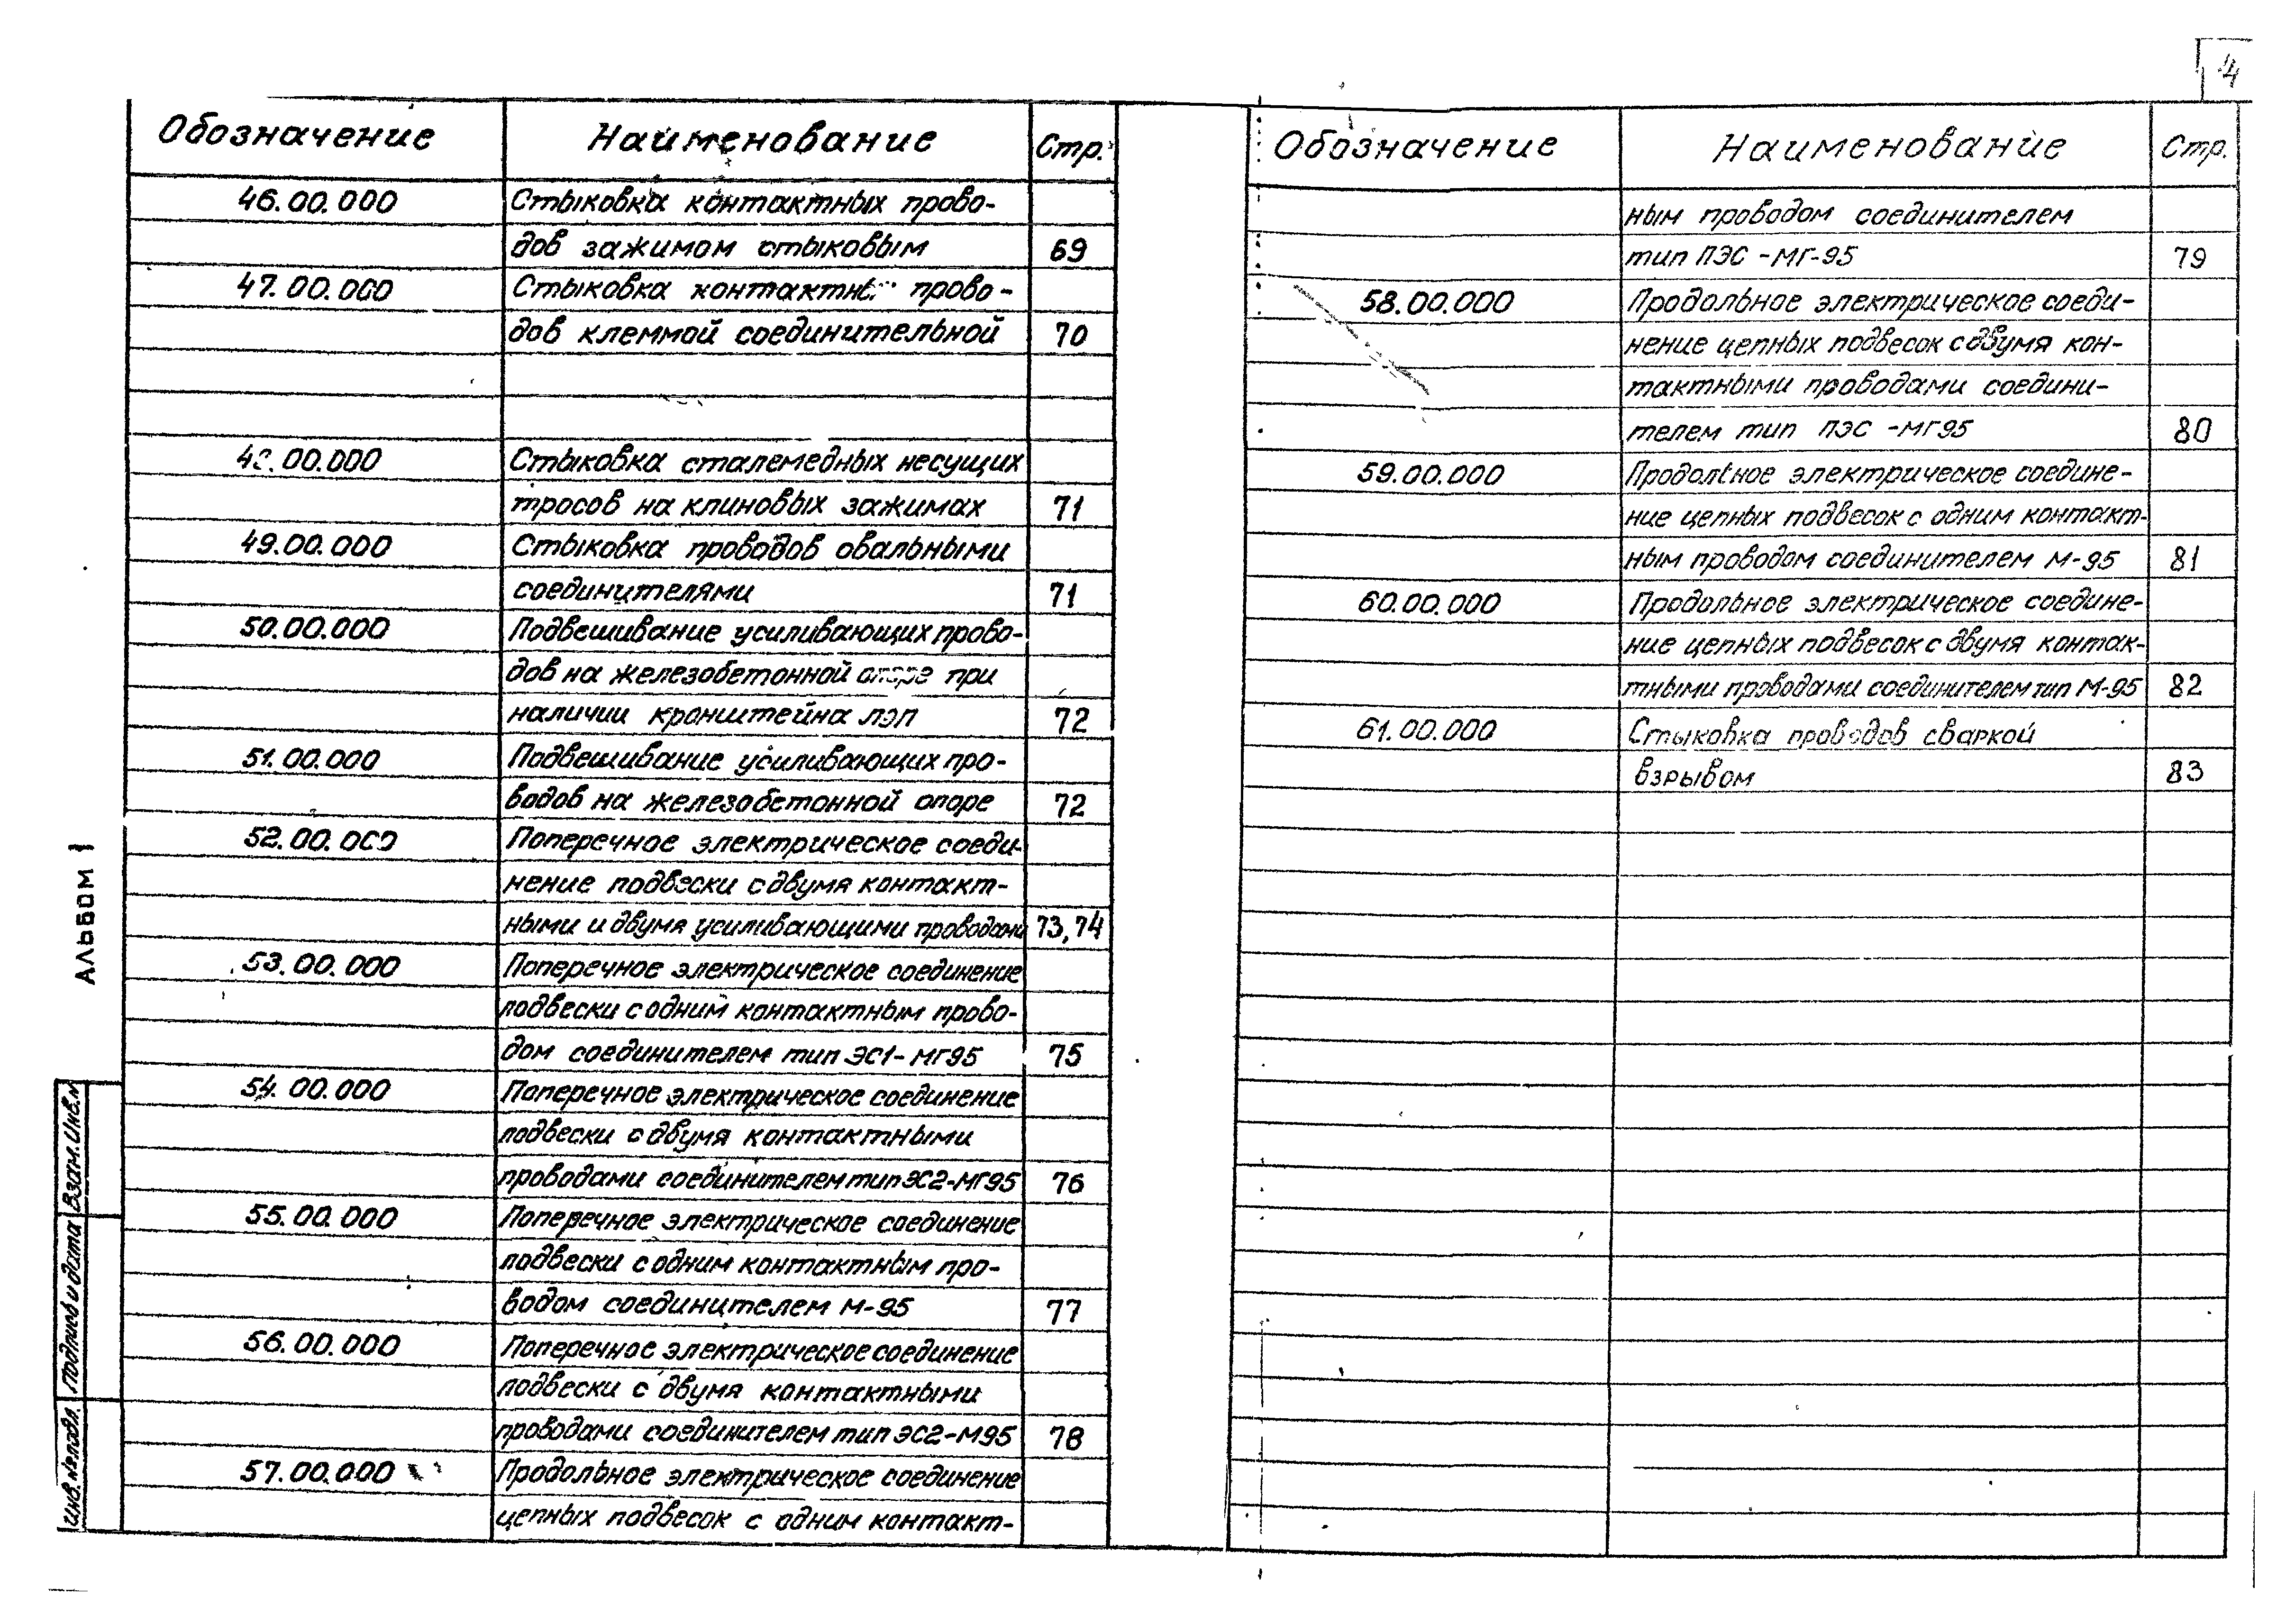 4
Обозначение Наименование Стр.
46.00.000 Стыковка контактных прово-
дов зажимом стыковым 69
47.00.000 Стыковка прово-
дов клеммой соединительной 70
Стыковка сталемедных несущих
тросов на клиновых зажимах 71
49.00.000 Стыковка проводов овальными
соединителями 71
50.00.000 Подвешивание усиливающих прово-
дов на железобетонной опоре при
наличии кронштейна ЛЭП 72
51.00.000 Подвешивание усиливающих про-
водов на железобетонной опоре 72
52.00.000 Поперечное электрическое соеди-
нение подвески с двумя контакт-
ными и двумя усиливающими проводами 73,74
53.00.000 Поперечное электрическое соединение
подвески с одним контактным прово-
дом соединителем тип ЭС1-МГ95 75
54.00.000 Поперечное электрическое соединение
подвески с двумя контактными
проводами соединителем тип ЭС2-МГ95 76
55.00.000 Поперечное электрическое соединение
подвески с одним контактным про-
водом соединителем М-95 77
56.00.000 Поперечное электрическое соединение
подвески с двумя контактными
проводами соединителем тип ЭС2-М95 78
57.00.000 Продольное электрическое соединение
цепных подвесок с одним контакт-
Обозначение Наименование Стр.
ным проводом соединителем
тип ПЭС-МГ-95 79
58.00.000 Продольное электрическое соеди-
нение цепных подвесок с двумя кон-
тактными проводами соедини-
телем тип ПЭС-МГ95 80
59.00.000 Продольное электрическое соедине-
ние цепных подвесок с одним контакт-
ным проводом соединителем М-95 81
60.00.000 Продольное электрическое соедине-
ние цепных подвесок с двумя контак-
тными проводами соединителем тип М-95 82
61.00.000 Стыковка проводов сваркой
взрывом 83
АЛЬБОМ 1
Взам. инв. №
Подпись и дата
Инв. № подл.